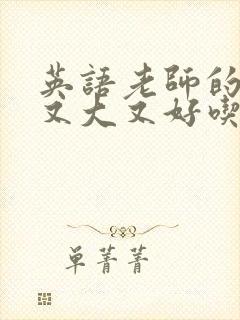 英語老師的
又大又好喫
单菁菁